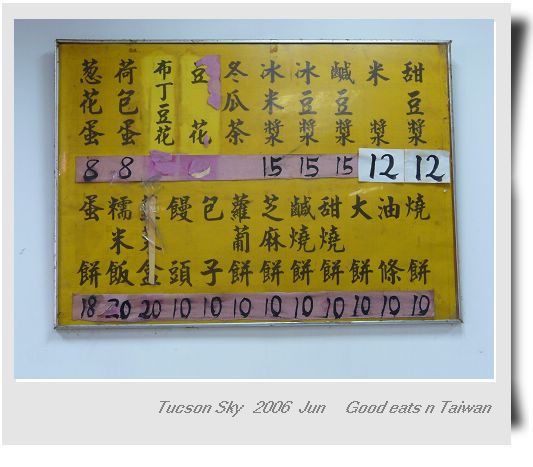 甜豆漿 12
米漿 12
鹹豆漿 15
冰豆漿 15
冰米漿 15
冬瓜茶
豆花
布丁豆花
荷包蛋 8
葱花蛋 8
燒餅 10
油條 10
大餅 10
甜燒餅 10
鹹燒餅 10
芝麻餅 10
蘿蔔餅 10
包子 10
饅頭 10
盒 20
糯米飯 20
蛋餅 18
Tucson Sky 2006 Jun Good eats n Taiwan